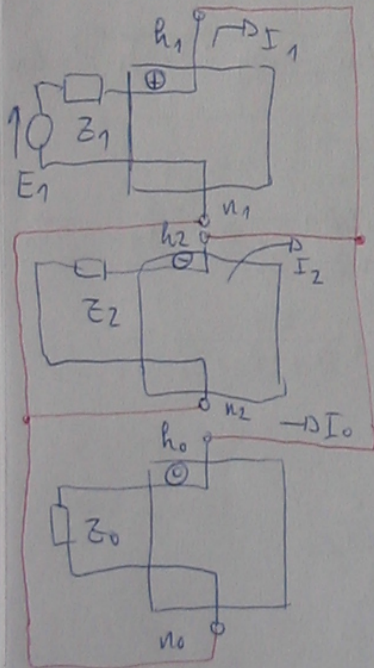 h₁ I₁
⊕
Z₁
E₁
n₁
h₂
⊖ I₂
Z₂
n₂
h₀ I₀
Z₀
n₀